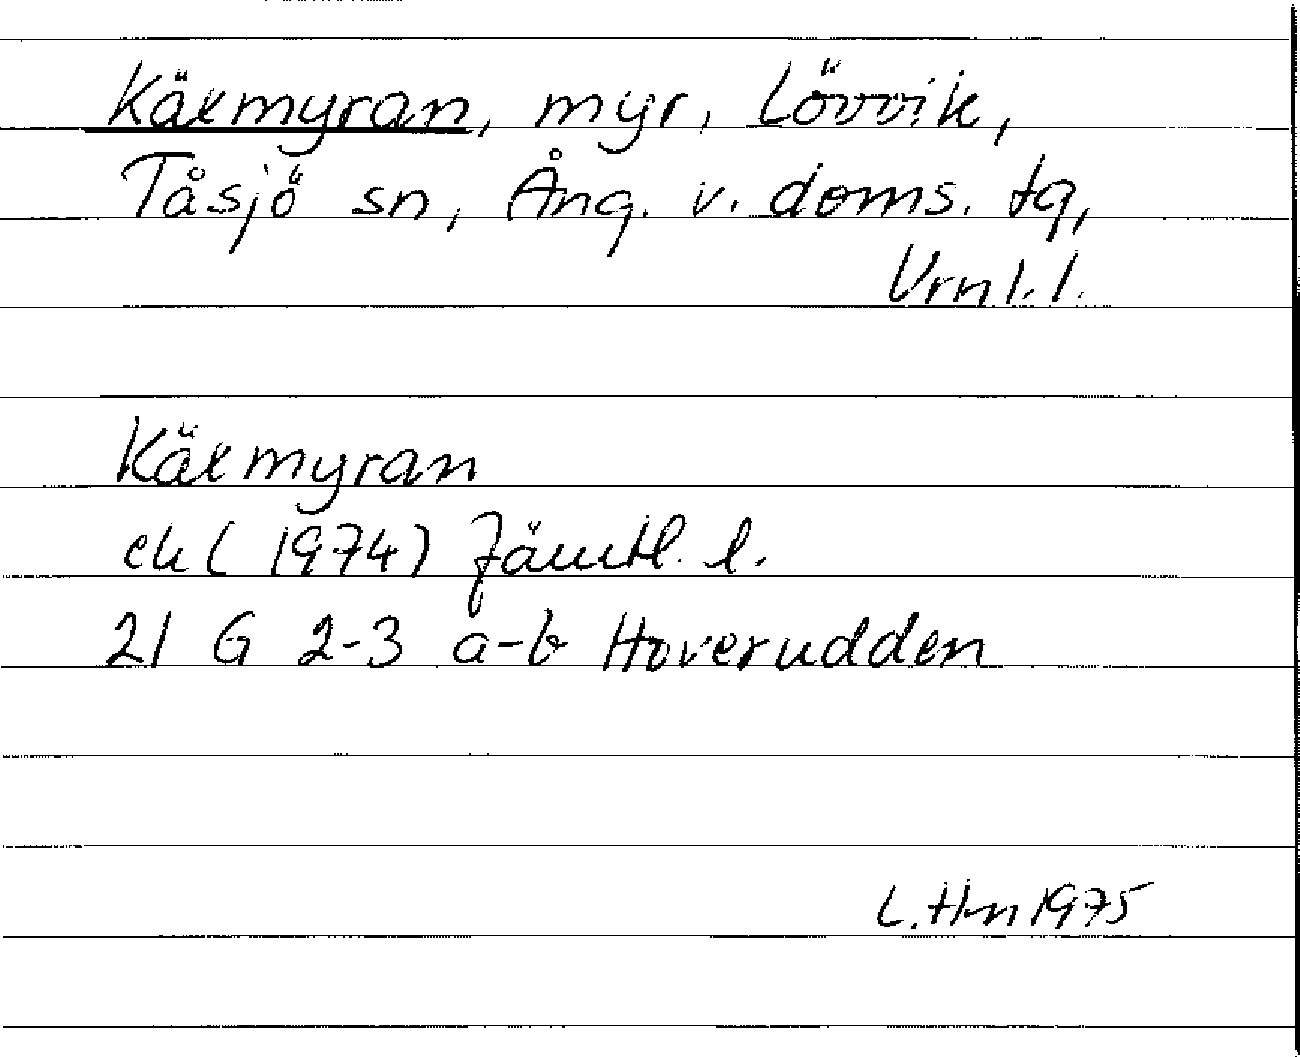 Käxmyran, myr, Lövvik,
Tåsjö sn, Ång. v. doms. tg,
Vrnl. l.
Käxmyran
ek (1974) Jämtl. l.
21 G 2-3 a-b Hoverudden
L. Hm 1975